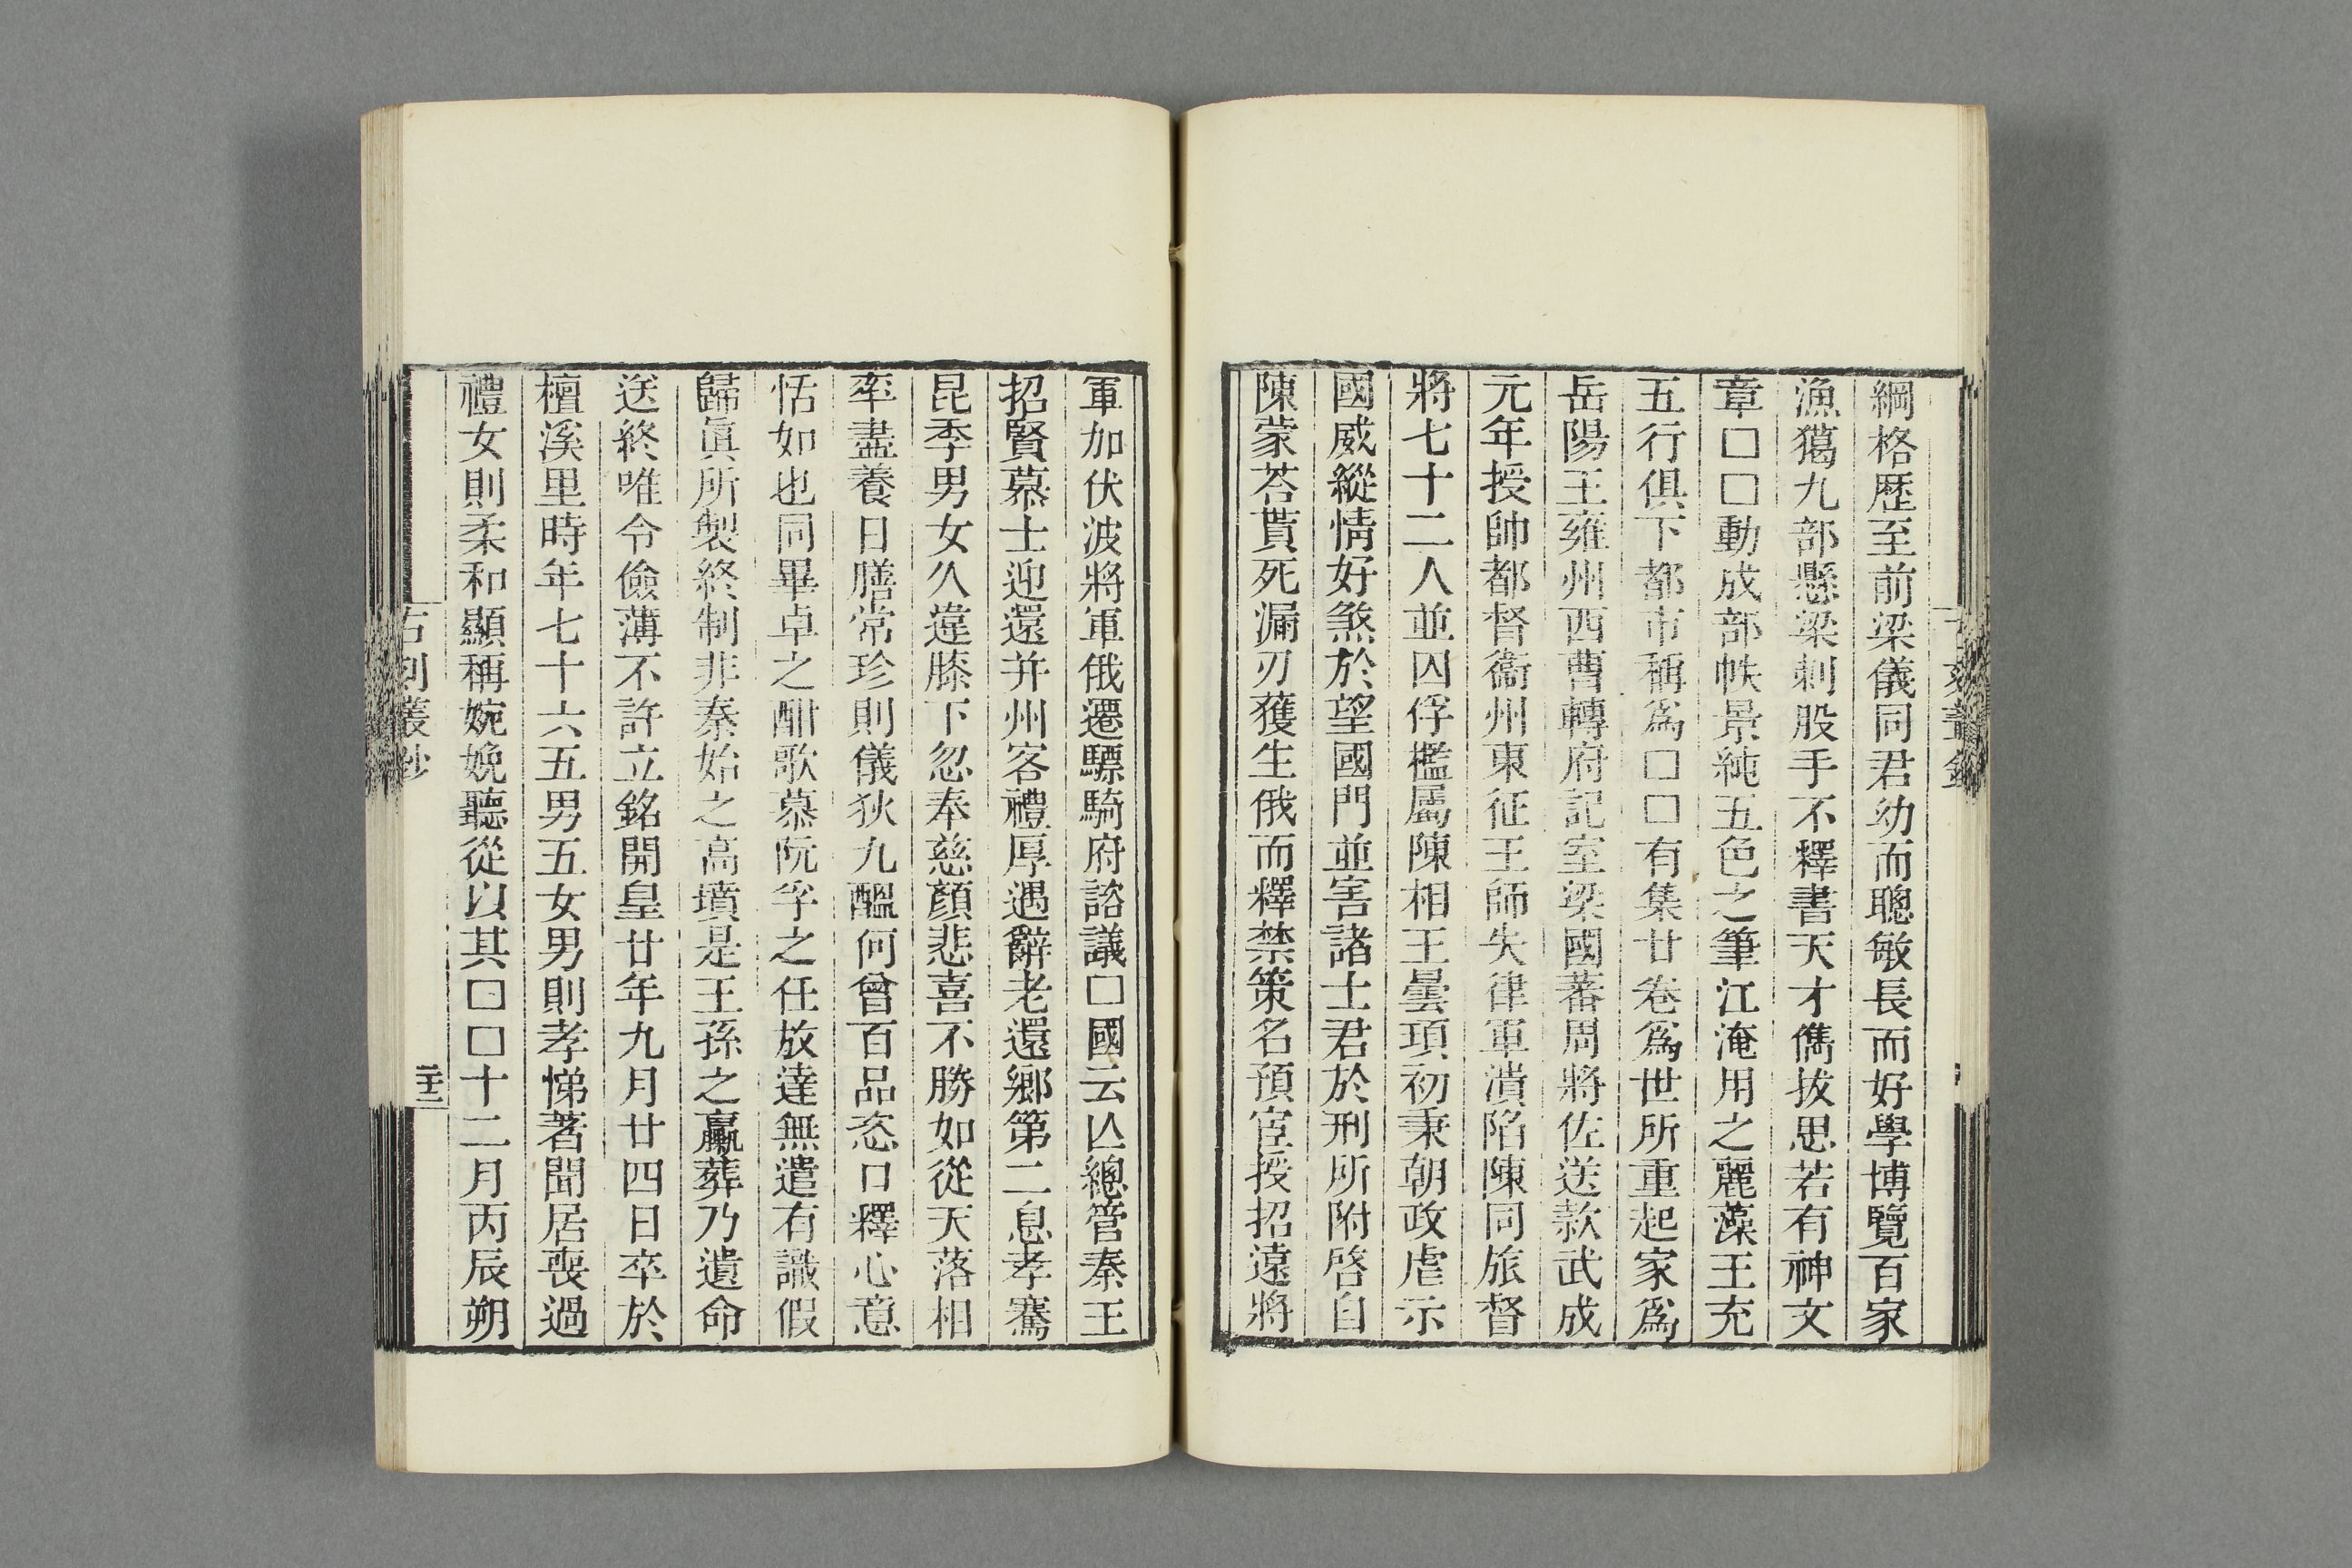 綱格歷至前梁儀同君幼而聰敏長而好學博覽百家
漁獵九部懸梁刺股手不釋書天才儁拔思若有神文
章□□動成部帙景純五色之筆江淹用之麗藻王充
五行俱下都市稱爲□□有集廿卷爲世所重起家爲
岳陽王雍州西曹轉府記室梁國蕃周將佐送款武成
元年授帥都督衞州東征王師失律軍潰陷陳同旅督
將七十二人並囚俘檻屬陳相王曇頊初秉朝政虐示
國威縱情好煞於望國門並害諸士君於刑所附啓自
陳蒙荅貰死漏刃獲生俄而釋禁策名預宦授招遠將
軍加伏波將軍俄遷驃騎府諮議□國云亾總管秦王
招賢慕士迎還并州客禮厚遇辭老還鄉第二息孝騫
昆季男女久違膝下忽奉慈顏悲喜不勝如從天落相
率盡養日膳常珍則儀狄九醞何曾百品恣口釋心意
恬如也同畢卓之酣歌慕阮孚之任放達無遣有識假
歸眞所製終制非秦始之高墳是王孫之臝葬乃遺命
送終唯令儉薄不許立銘開皇廿年九月廿四日卒於
檀溪里時年七十六五男五女男則孝悌著聞居喪過
禮女則柔和顯稱婉娩聽從以其□□十二月丙辰朔
石刻叢鈔